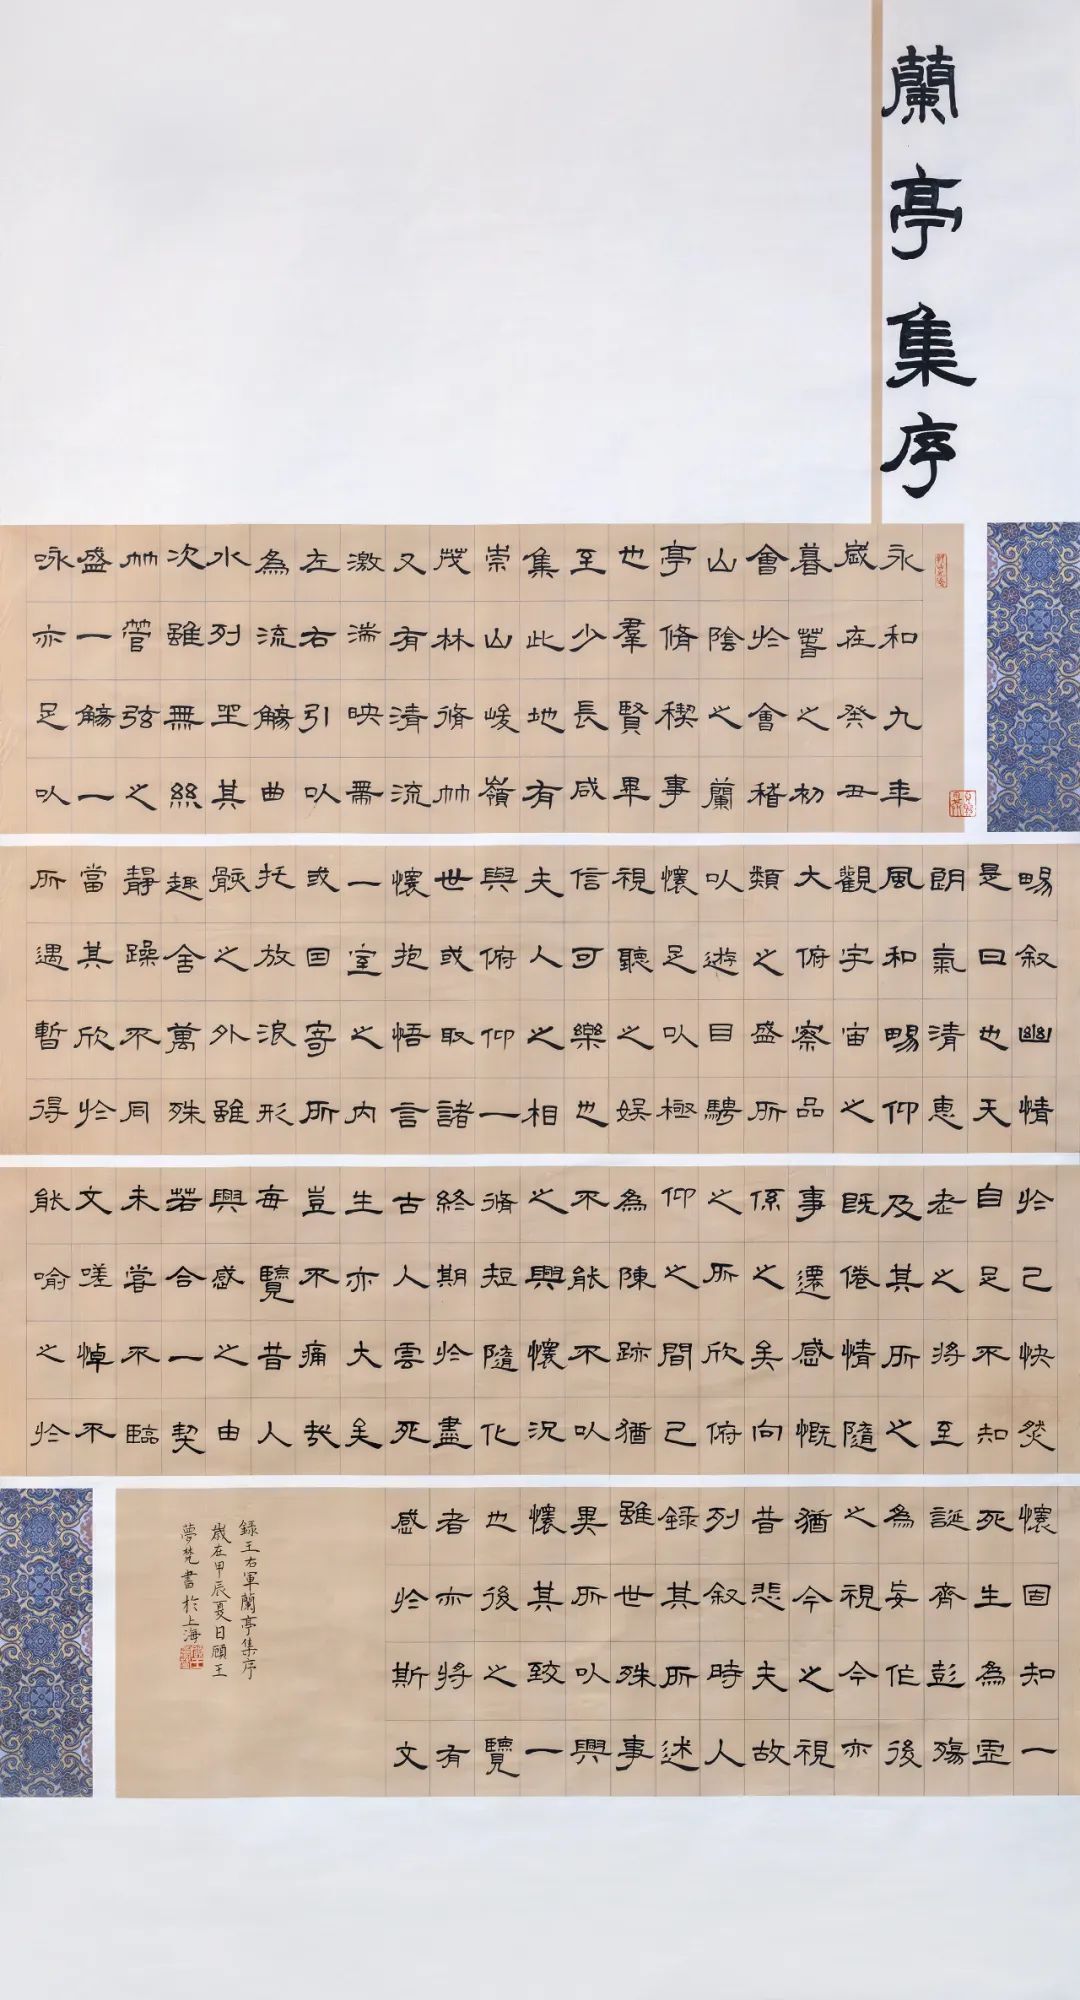 蘭亭集序
永和九年
歲在癸丑
暮萅之初
會於會稽
山陰之蘭
亭脩稧事
也羣賢畢
至少長咸
集此地有
崇山峻嶺
茂林脩竹
又有清流
激湍映帶
左右引以
為流觴曲
水列坐其
次雖無絲
竹管弦之
盛一觴一
咏亦足以
暢叙幽情
是日也天
朗氣清惠
風和暢仰
觀宇宙之
大俯察品
類之盛所
以遊目騁
懷足以極
視聽之娛
信可樂也
夫人之相
與俯仰一
世或取諸
懷抱悟言
一室之內
或因寄所
托放浪形
骸之外雖
趣舍萬殊
靜躁不同
當其欣於
所遇暫得
於己快然
自足不知
老之將至
及其所之
既倦情隨
事遷感慨
係之矣向
之所欣俯
仰之間已
為陳跡猶
不能不以
之興懷況
脩短隨化
終期於盡
古人雲死
生亦大矣
豈不痛哉
每覽昔人
興感之由
若合一契
未嘗不臨
文嗟悼不
能喻之於
懷固知一
死生為虛
誕齊彭殤
為妄作後
之視今亦
猶今之視
昔悲夫故
列叙時人
錄其所述
雖世殊事
異所以興
懷其致一
也後之覽
者亦將有
感於斯文
錄王右軍蘭亭集序
歲在甲辰夏日顧王
夢梵書於上海